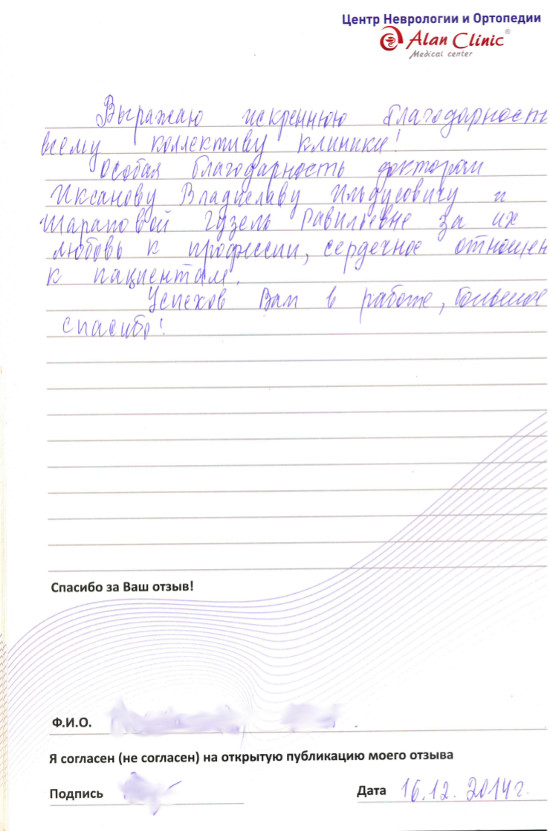 Центр Неврологии и Ортопедии
Alan Clinic®
Medical center
Выражаю искреннюю благодарность
всему коллективу клиники!
Особая благодарность докторам
Иксанову Владиславу Ильдусовичу и
Шараповой Гузель Равильевне за их
любовь к профессии, сердечное отношен
к пациентам.
Успехов Вам в работе, большое
спасибо!
Спасибо за Ваш отзыв!
Ф.И.О.
Я согласен (не согласен) на открытую публикацию моего отзыва
Подпись
Дата 16.12.2014г.